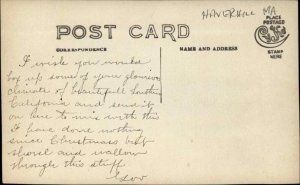 HAVERHILL MA.
POST CARD
CORRESPONDENCE
NAME AND ADDRESS
PLACE
POSTAGE
STAMP
HERE
I wish you would
box up some of your glorious
climate of beautiful Southern
California and send it
on here to mix with this
I have done nothing
since Christmas but
shovel and wallow
through this stuff